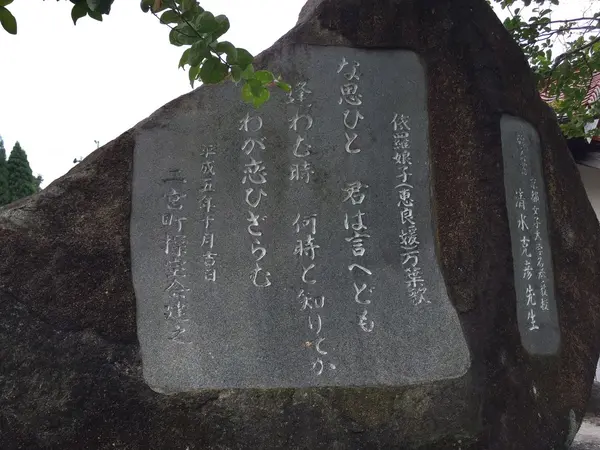 依羅娘子(恵良媛)万葉歌
な思ひと 君は言へども
逢わむ時 何時と知りてか
わが恋ひざらむ
平成五年十月吉日
二宮町 会建之
京都女子大学名誉教授
清水克彦先生